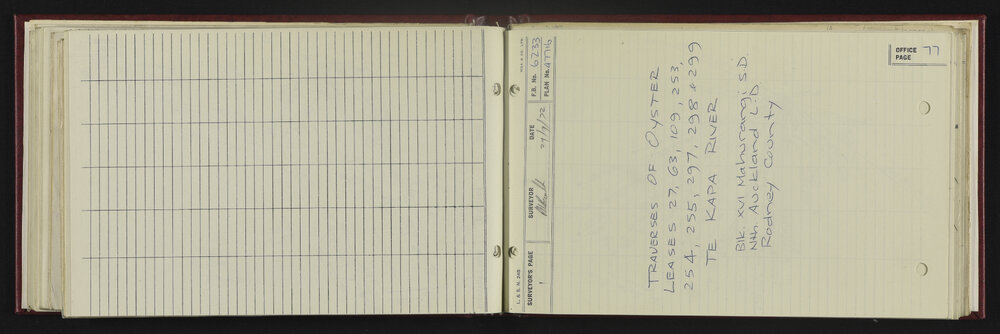 OFFICE PAGE 77
L. & S. N. 24B
SURVEYOR'S PAGE 1
SURVEYOR
DATE 27/7/72
F.B. No. 6233
PLAN No. 47716
TRAVERSES OF OYSTER
LEASES 27, 63, 109, 253,
254, 255, 297, 298 & 299
TE KAPA RIVER
Blk. XVI Mahurangi S.D.
Nth. Auckland L.D
Rodney County